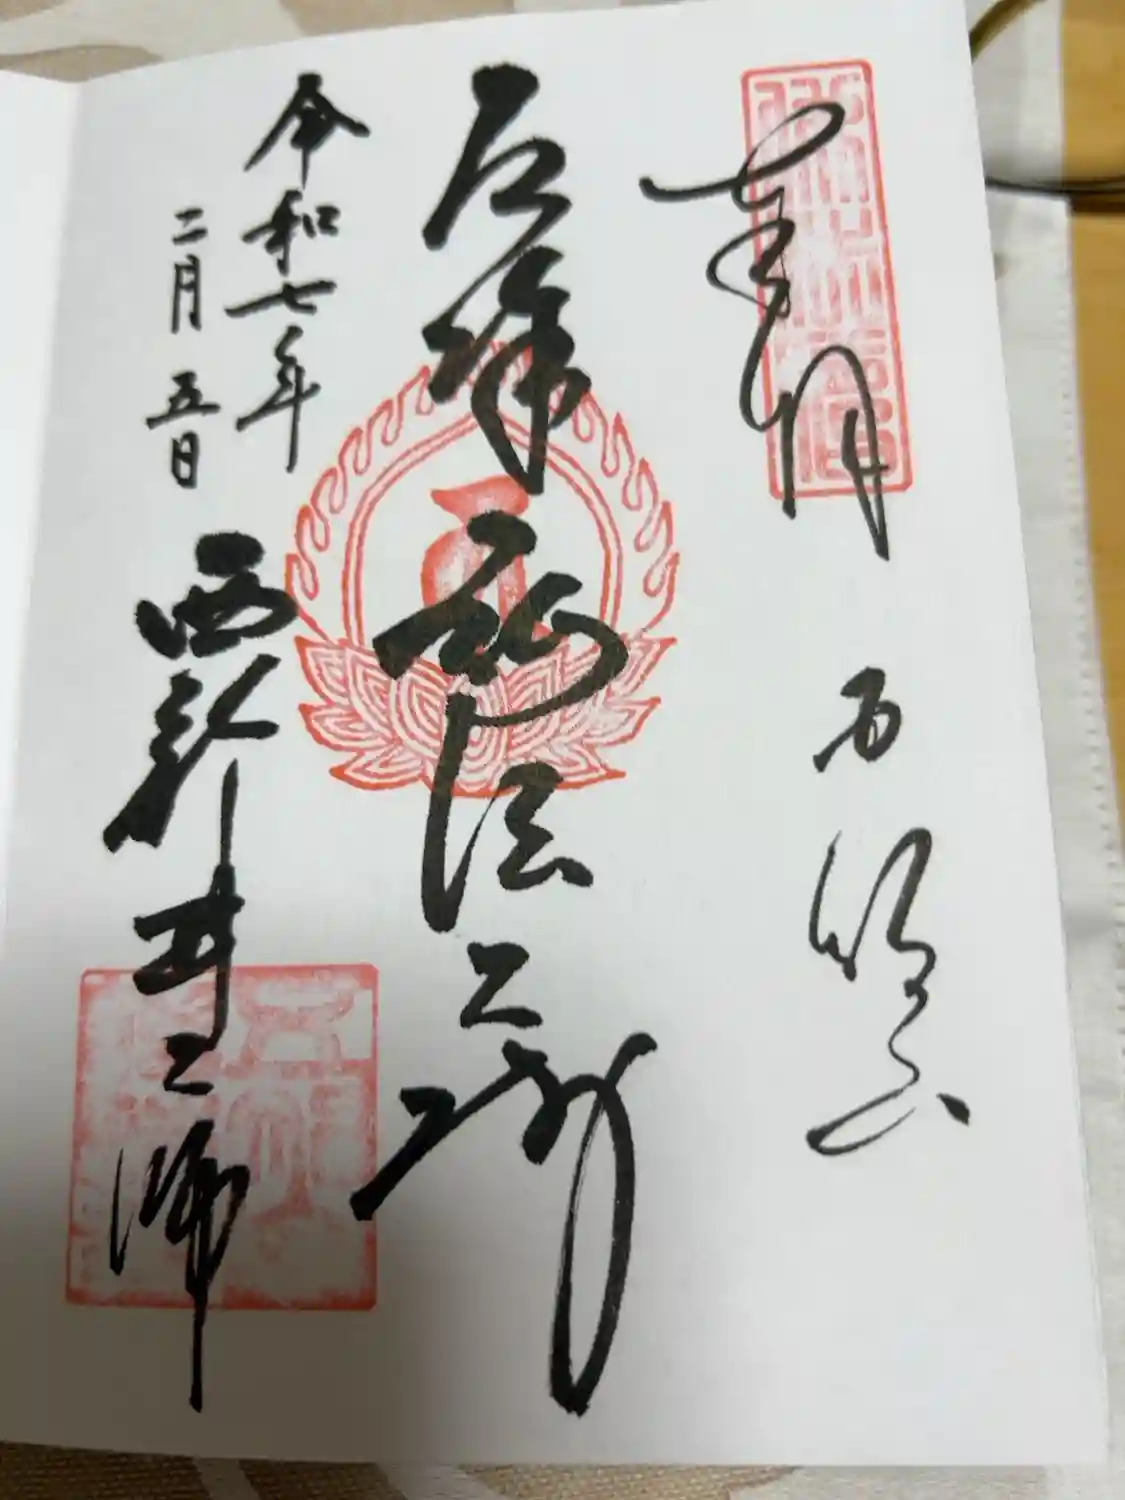 奉拝 五智山
厄除弘法大師
令和七年
二月五日
西新井大師